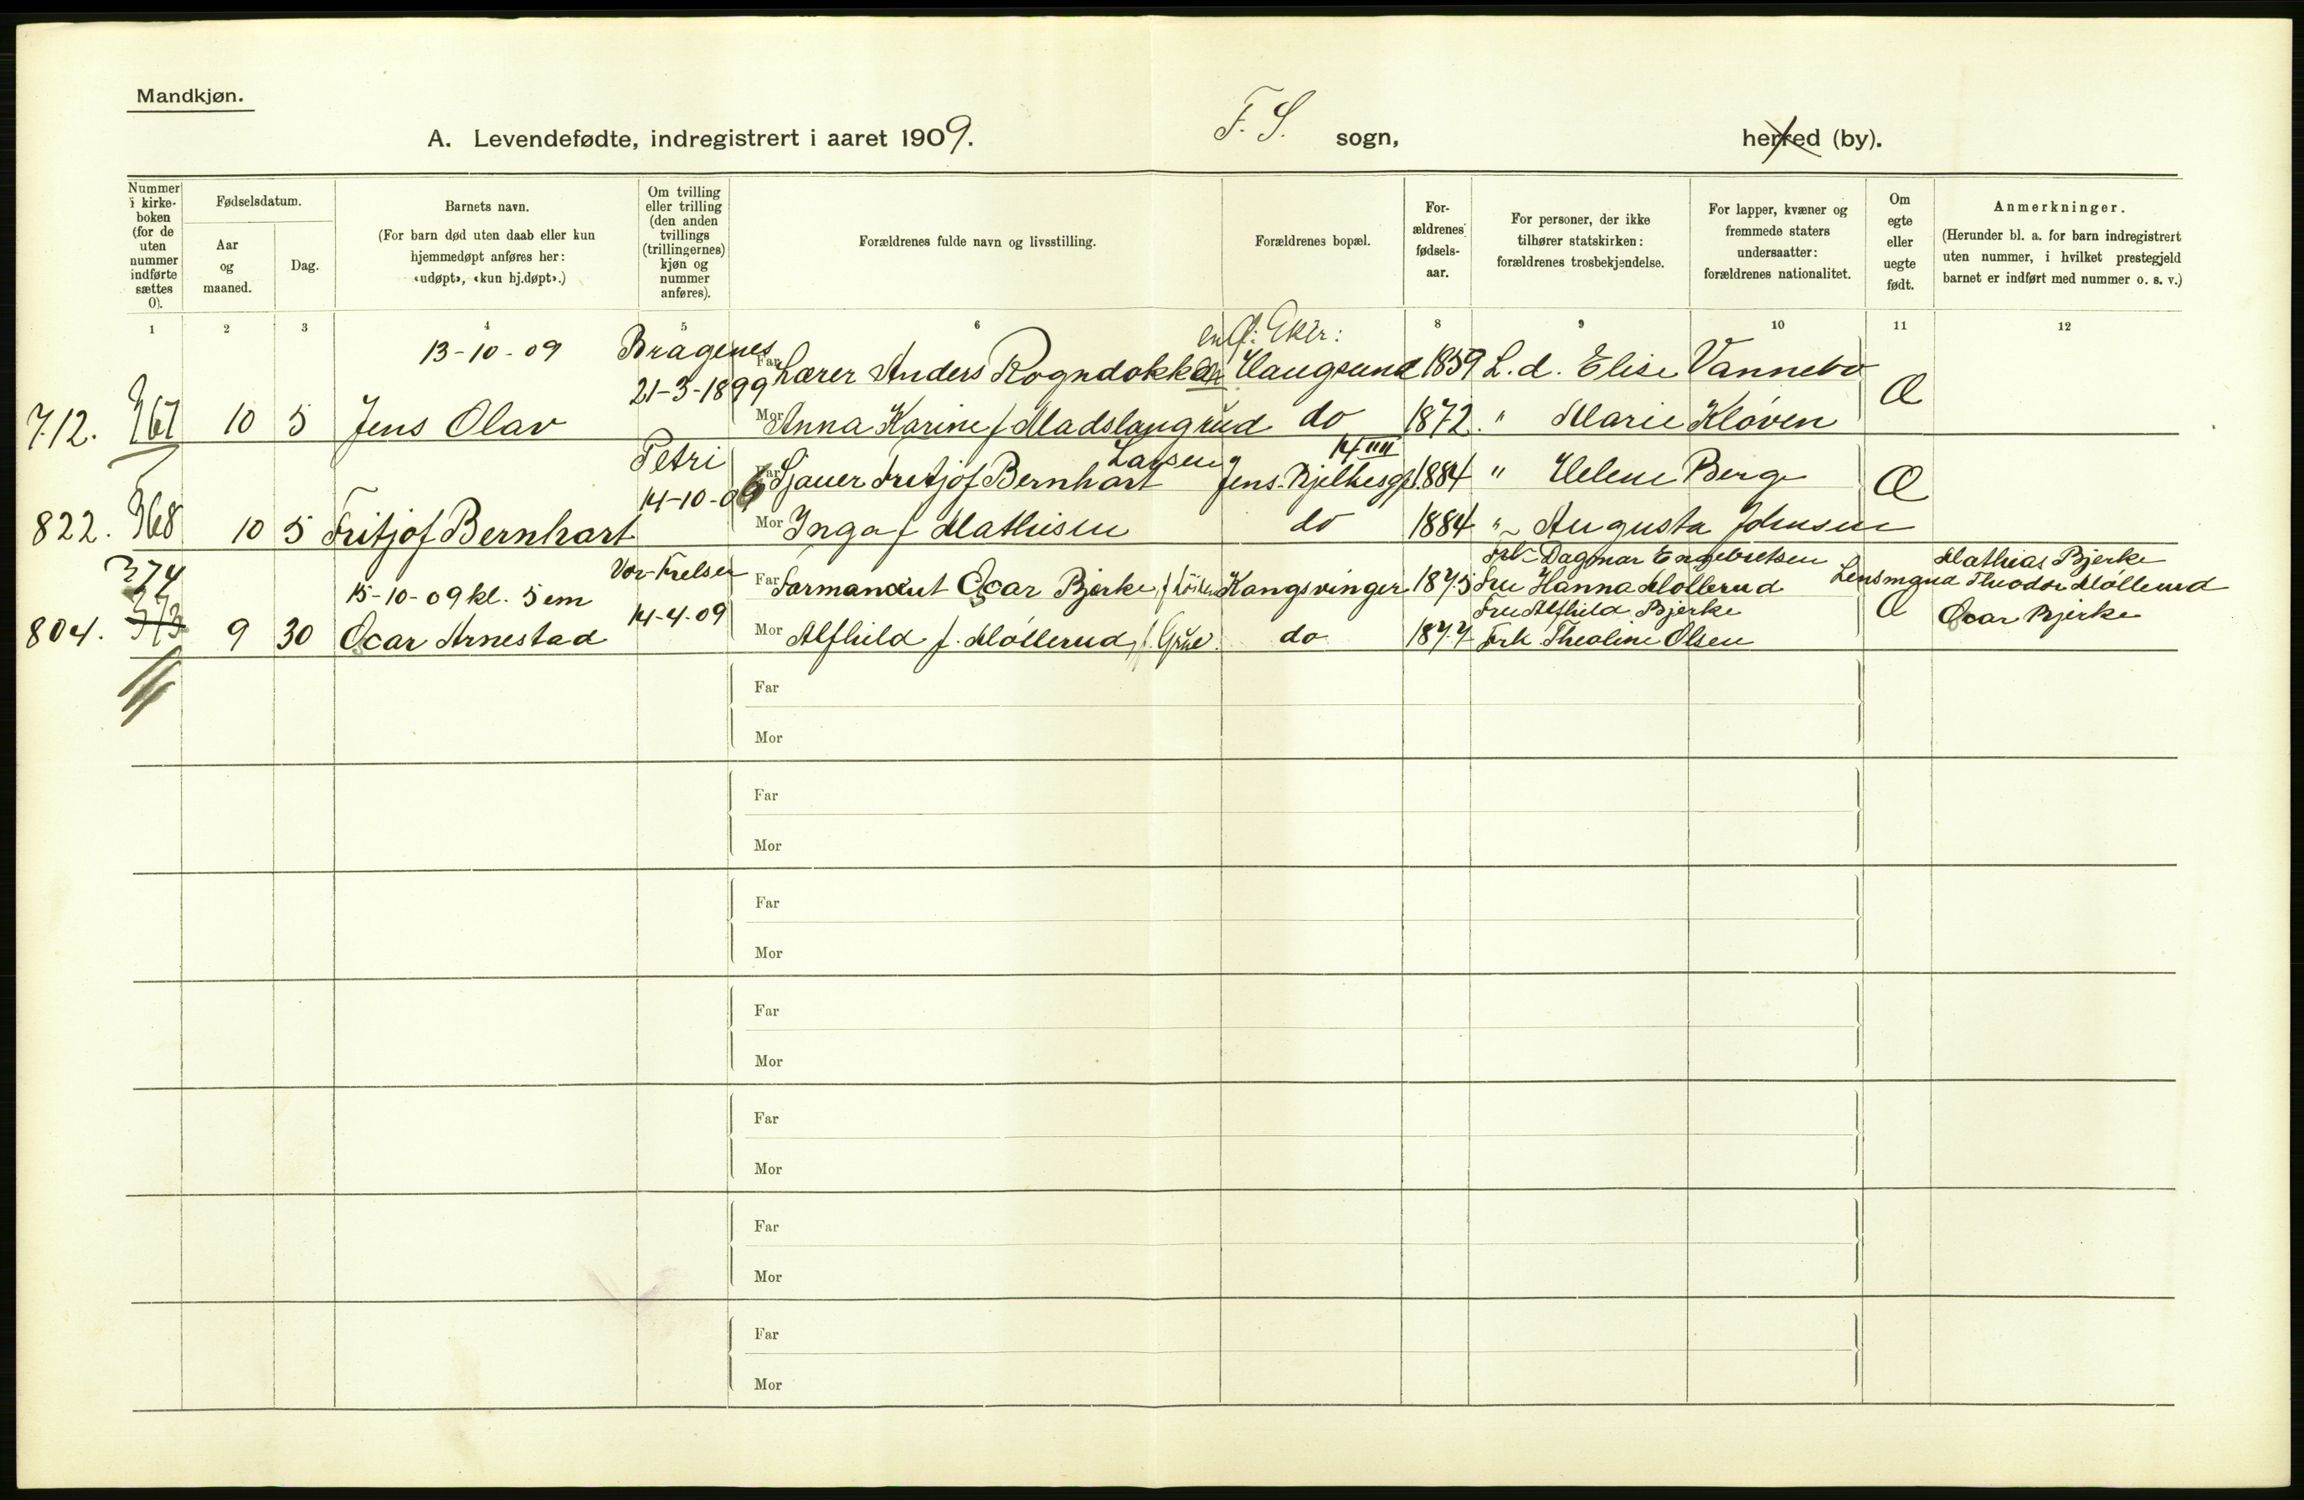 Mandkjøn.
A. Levendefødte, indregistrert i aaret 1909.
F. S. sogn,
herred (by).
Nummer i kirke-boken (for de uten nummer indførte sættes 0).
Fødselsdatum.
Aar og maaned.
Dag.
Barnets navn.
(For barn død uten daab eller kun hjemmedøpt anføres her: «udøpt», «kun hj.døpt».)
Om tvilling eller trilling (den anden tvillings (trillingernes) kjøn og nummer anføres).
Forældrenes fulde navn og livsstilling.
Forældrenes bopæl.
For-ældrenes fødsels-aar.
For personer, der ikke tilhører statskirken: forældrenes trosbekjendelse.
For lapper, kvæner og fremmede staters undersaatter: forældrenes nationalitet.
Om egte eller uegte født.
Anmerkninger.
(Herunder bl. a. for barn indregistrert uten nummer, i hvilket prestegjeld barnet er indført med nummer o. s. v.)
1 2 3 4 5 6 8 9 10 11 12
13-10-09 Bragenes Far Lærer Anders Rogndokken Haugsund 1859 L. d. Elise Vannebo
21-3-1899
712. 367 10 5 Jens Olav Mor Anna Karine f Madslangrud do 1872 " Marie Kløven Æ
Petri Far Sjauer Fritjof Bernhart Larsen Jens Bjelkesg 14 IIII 1884 " Helene Berg
14-10-06
822. 368 10 5 Fritjof Bernhart Mor Inga f Mathisen do 1884 " Augusta Johnsen Æ
374 Vor Frelser Frk Dagmar Engebretsen Mathias Bjerke
15-10-09 kl. 5 em Far Formand Oscar Bjerke, Kongsvinger 1875 Fru Hanna Møllerud Lensmand Theodor Møllerud
14-4-09 Fru Alfhild Bjerke
804. 373 9 30 Oscar Arnestad Mor Alfhild f. Møllerud, f. Grue do 1877 Frk Theoline Olsen Æ Oscar Bjerke
Far
Mor
Far
Mor
Far
Mor
Far
Mor
Far
Mor
Far
Mor
Far
Mor